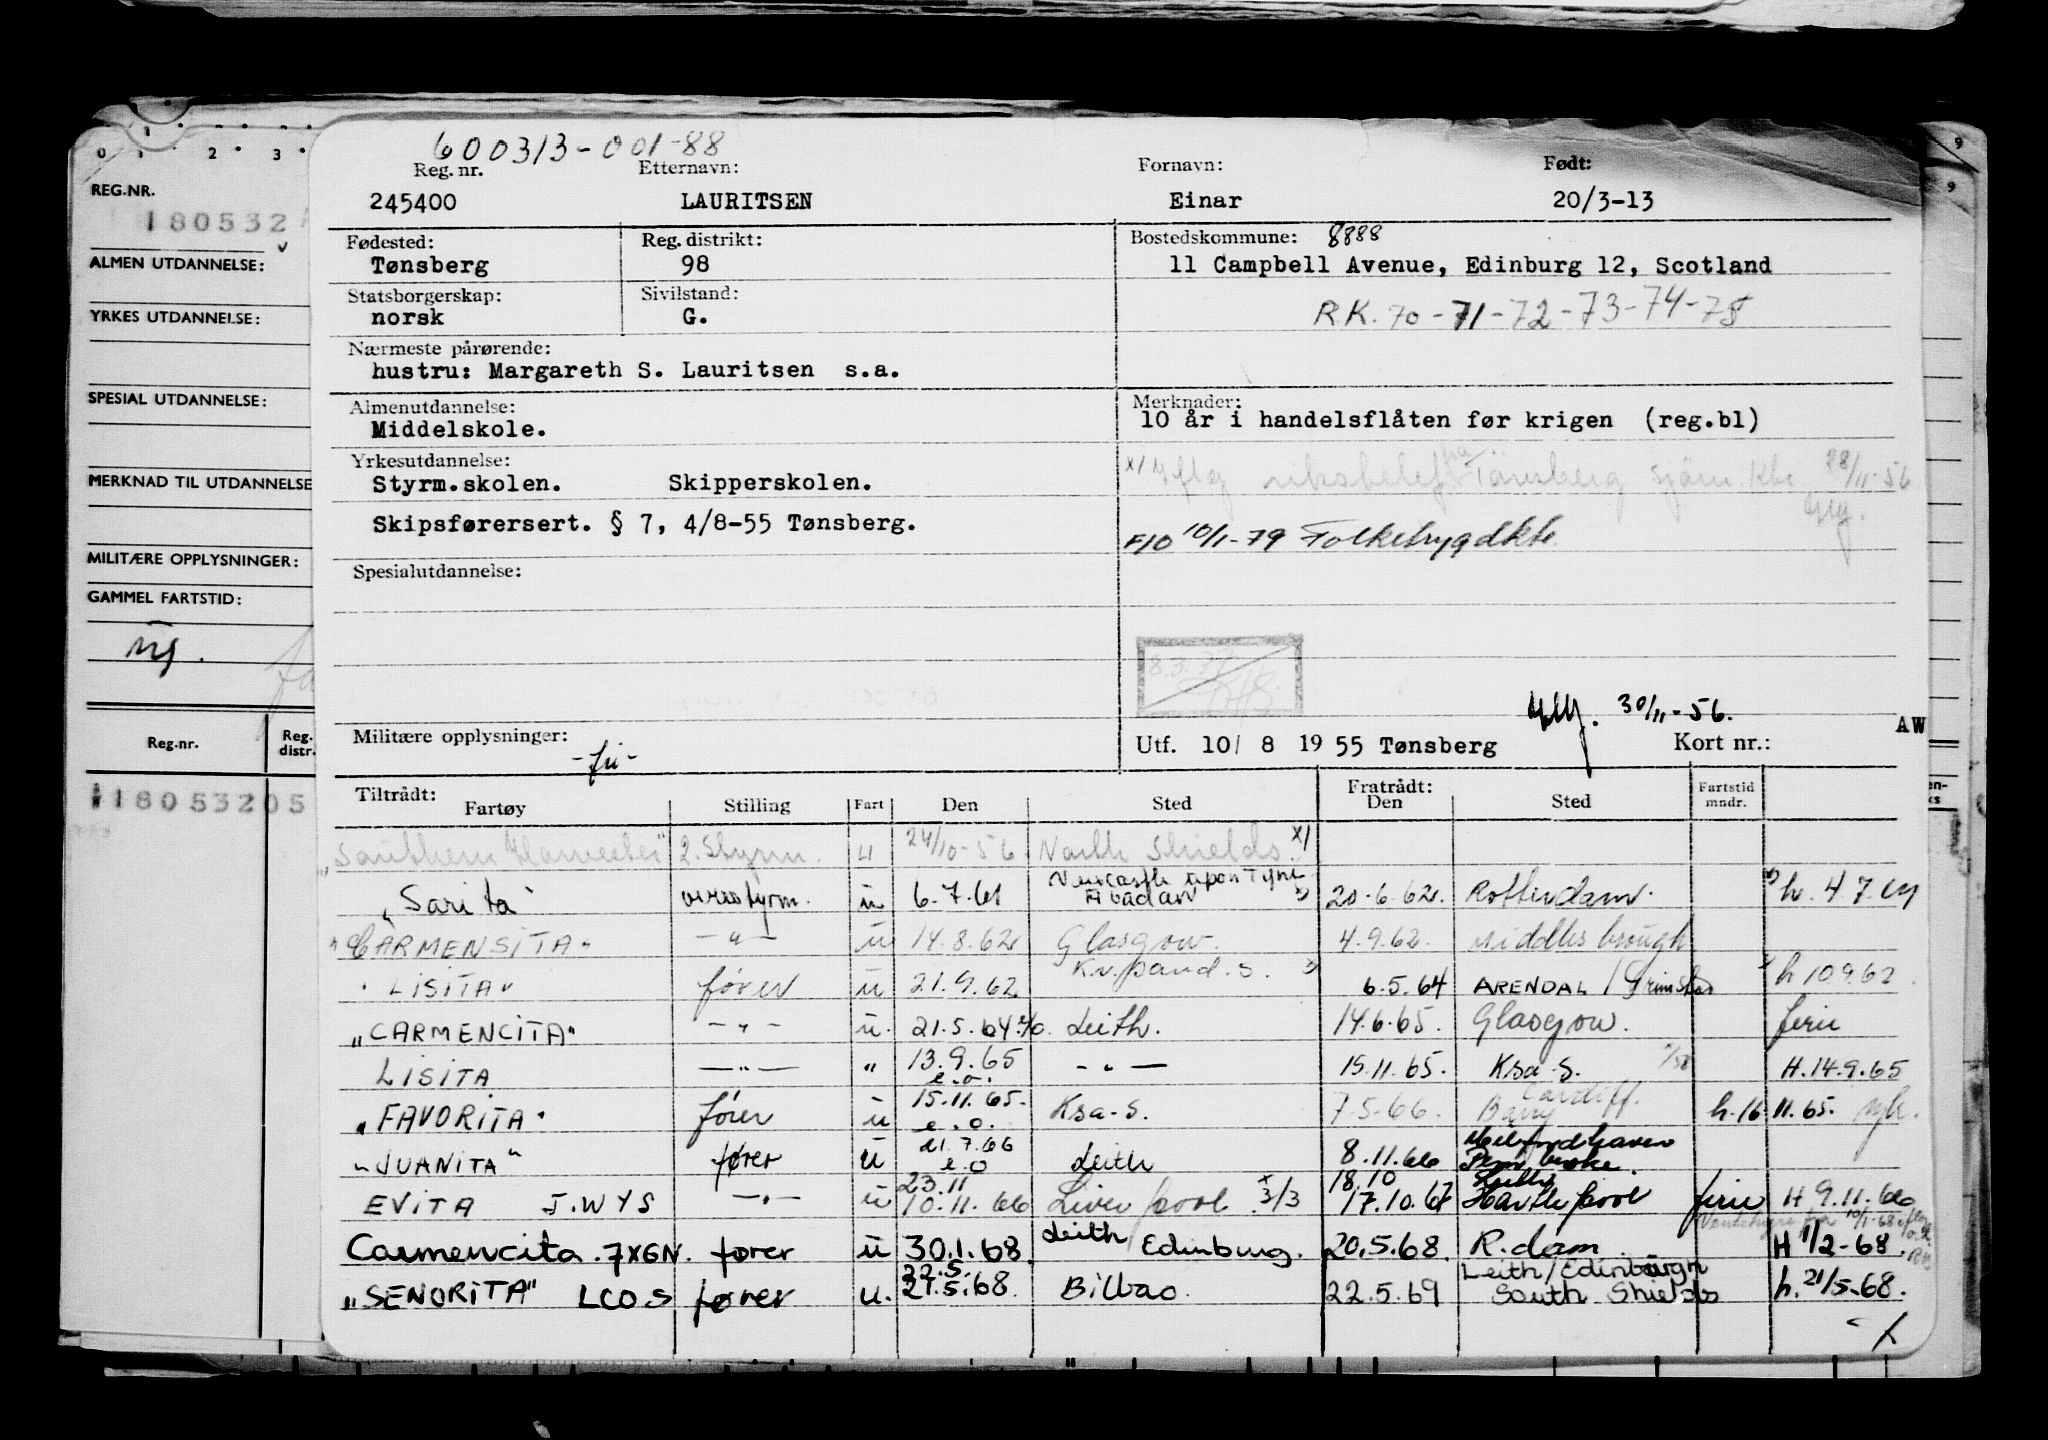 600313-001-88
Reg. nr. Etternavn: Fornavn: Født:
245400 LAURITSEN Einar 20/3-13
Fødested: Reg. distrikt: Bostedskommune: 8888
Tønsberg 98 11 Campbell Avenue, Edinburg 12, Scotland
Statsborgerskap: Sivilstand:
norsk G. R.K. 70-71-72-73-74-75
Nærmeste pårørende:
hustru: Margareth S. Lauritsen s.a.
Almenutdannelse: Merknader:
Middelskole. 10 år i handelsflåten før krigen (reg.bl)
Yrkesutdannelse:
Styrm.skolen. Skipperskolen.
Tönsberg sjöm. 28/11-56
Skipsførersert. § 7, 4/8-55 Tønsberg.
F/O 10/1-79 Folketrygdktr.
Spesialutdannelse:
30/11-56.
Militære opplysninger: -fri-
Utf. 10/ 8 19 55 Tønsberg Kort nr.: AW
Tiltrådt: Fratrådt:
Fartøy Stilling Fart Den Sted Den Sted Fartstid mndr.
"Southern Harvester" 2. styrm. u 24/10-56 North Shields x/
"Sarita" overstyrm. u 6.7.61 Newcastle upon Tyne Abadan 20.6.62. Rotterdam. h. 4.7.61
"CARMENSITA" -"- u 14.8.62 Glasgow. 4.9.62. Middlesbrough
"LISITA" fører u 21.9.62 Kr.sand.S. 6.5.64 ARENDAL/Grimstad h 10.9.62
"CARMENCITA" -"- u. 21.5.64 e/o. Leith. 14.6.65. Glasgow. ferie
LISITA -"- " 13.9.65 e.o. -"- 15.11.65. Ksa-S. H.14.9.65
"FAVORITA" fører u 15.11.65. e.o. Ksa-S. 7.5.66. Barry Cardiff. h.16.11.65.
"JUANITA" fører u 21.7.66 e.o Leith 8.11.66 Milfordhaven Pembroke.
EVITA J.WYS -"- u 23.11 10.11.66 Liverpool x 3/3 18.10 17.10.67 Leith Hartlepool ferie H 9.11.66
Carmencita. 7XGN. fører u 30.1.68 Leith Edinburg. 20.5.68. R.dam. H 1/2-68.
"SENORITA" LCOS fører u. 22.5. 21.5.68. Bilbao. 22.5.69 Leith/Edinburgh South Shields h. 21/5-68.
REG.NR.
1180532
ALMEN UTDANNELSE:
YRKES UTDANNELSE:
SPESIAL UTDANNELSE:
MERKNAD TIL UTDANNELSE
MILITÆRE OPPLYSNINGER:
GAMMEL FARTSTID:
Reg.nr. Reg. distr.
118053205